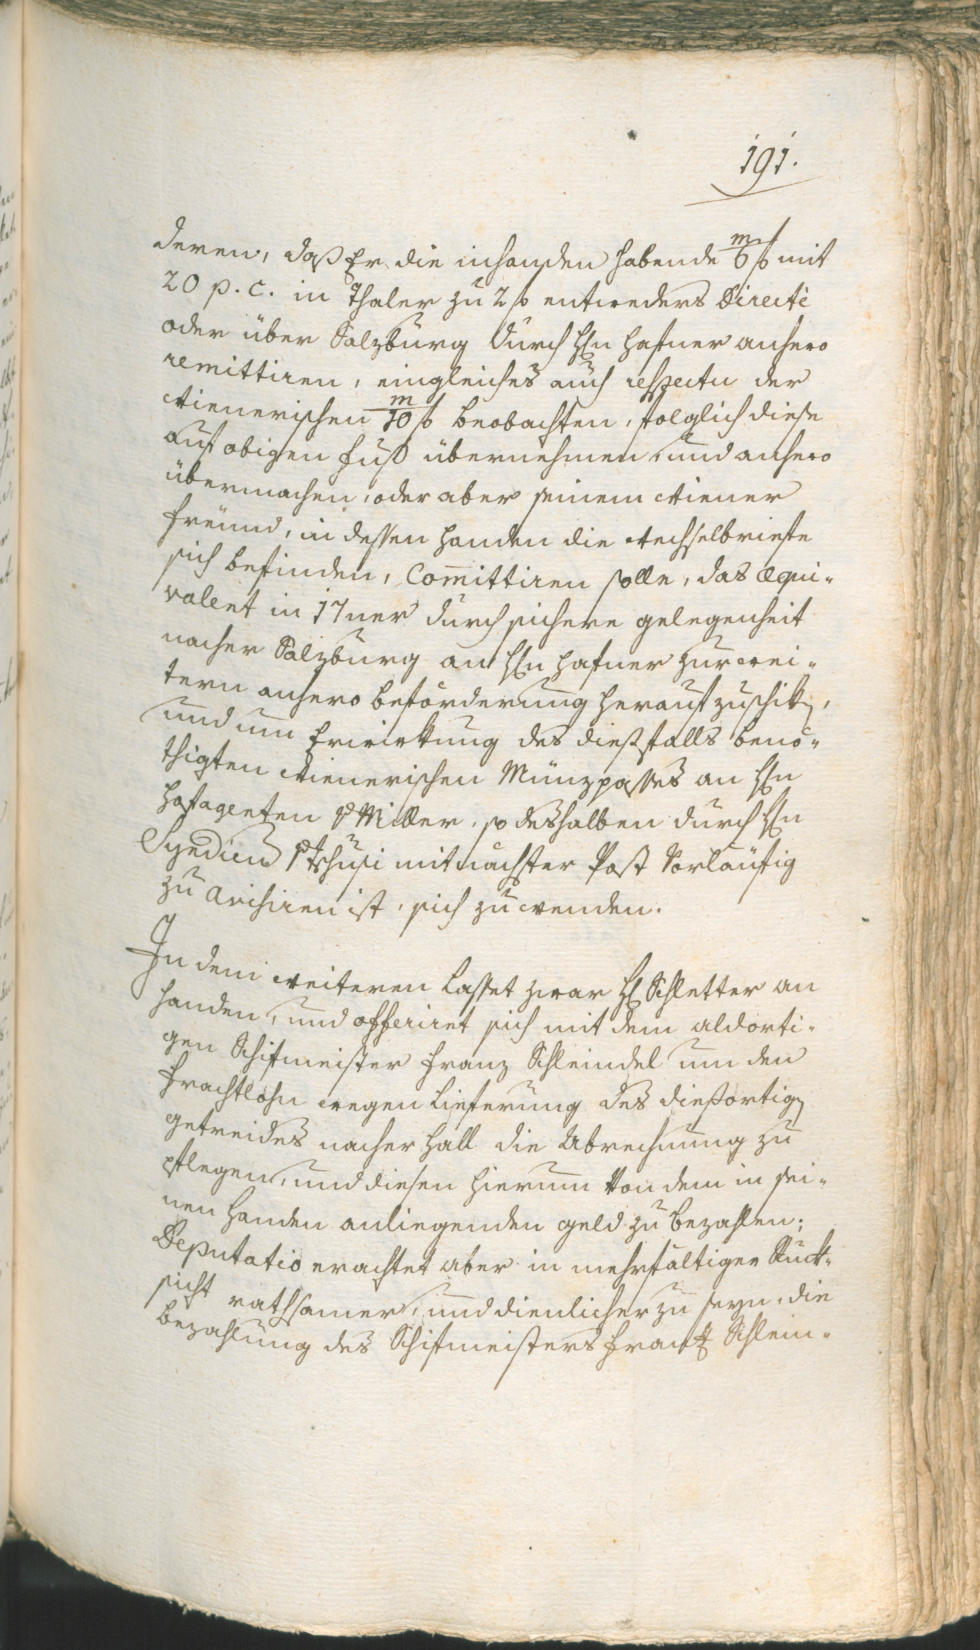 191.
deren, daß Er die inhanden habende 6/m f mit
20 p. C. in Thaler zu 2 f entweders Directè
oder über Salzburg durch Hn Hafner anhero
remittiren, eingleiches auch respectu der
Wienerischen 10/m f beobachten, folglich diese
auf obigen Fuß übernehmen, und anhero
übermachen, oder aber seinem Wiener
Freünd, in dessen Handen die Wechselbriefe
sich befinden, Com̅ittiren solle, das æqui-
valent in 17ner durch sichere gelegenheit
nacher Salzburg an Hn Hafner zur wei-
tern anhero beförderung herauf zuschikn,
und um Erwirkung des dießfalls benö-
thigten Wienerischen Münzpasses an Hn
Hofagenten v Miller, so deshalben durch Hn
Syndicus v Tschusi mit nächster Post Vorläufig
zu avisiren ist, sich zu wenden.
In dem weiteren Lasset zwar H Schletter an
Handen, und offeriret sich mit dem aldorti-
gen Schifmeister Franz Schleindel um den
Frachtlohn wegen Lieferung des dießortign
getreides nacher Hall die Abrechnung zu
pflegen, und diesen hierum Von dem in sei-
nen Handen anliegenden geld zu bezahlen;
Deputatio erachtet aber in mehrfältiger Rück-
sicht rathsamer, und dienlicher zu seyn, die
bezahlung des Schifmeisters Frantz Schlein-